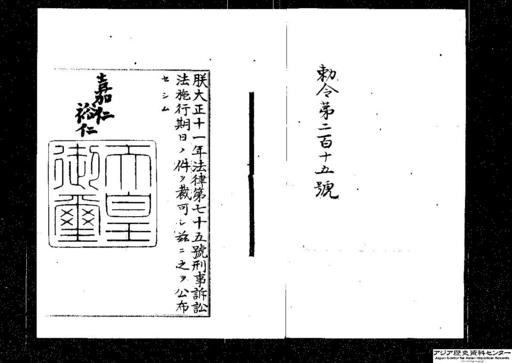 勅令第二百十五號
朕大正十一年法律第七十五號刑事訴訟
法施行期日ノ件ヲ裁可シ茲ニ之ヲ公布
セシム
嘉仁
裕仁
天皇
御璽
アジア歴史資料センター
Japan Center for Asian Historical Records